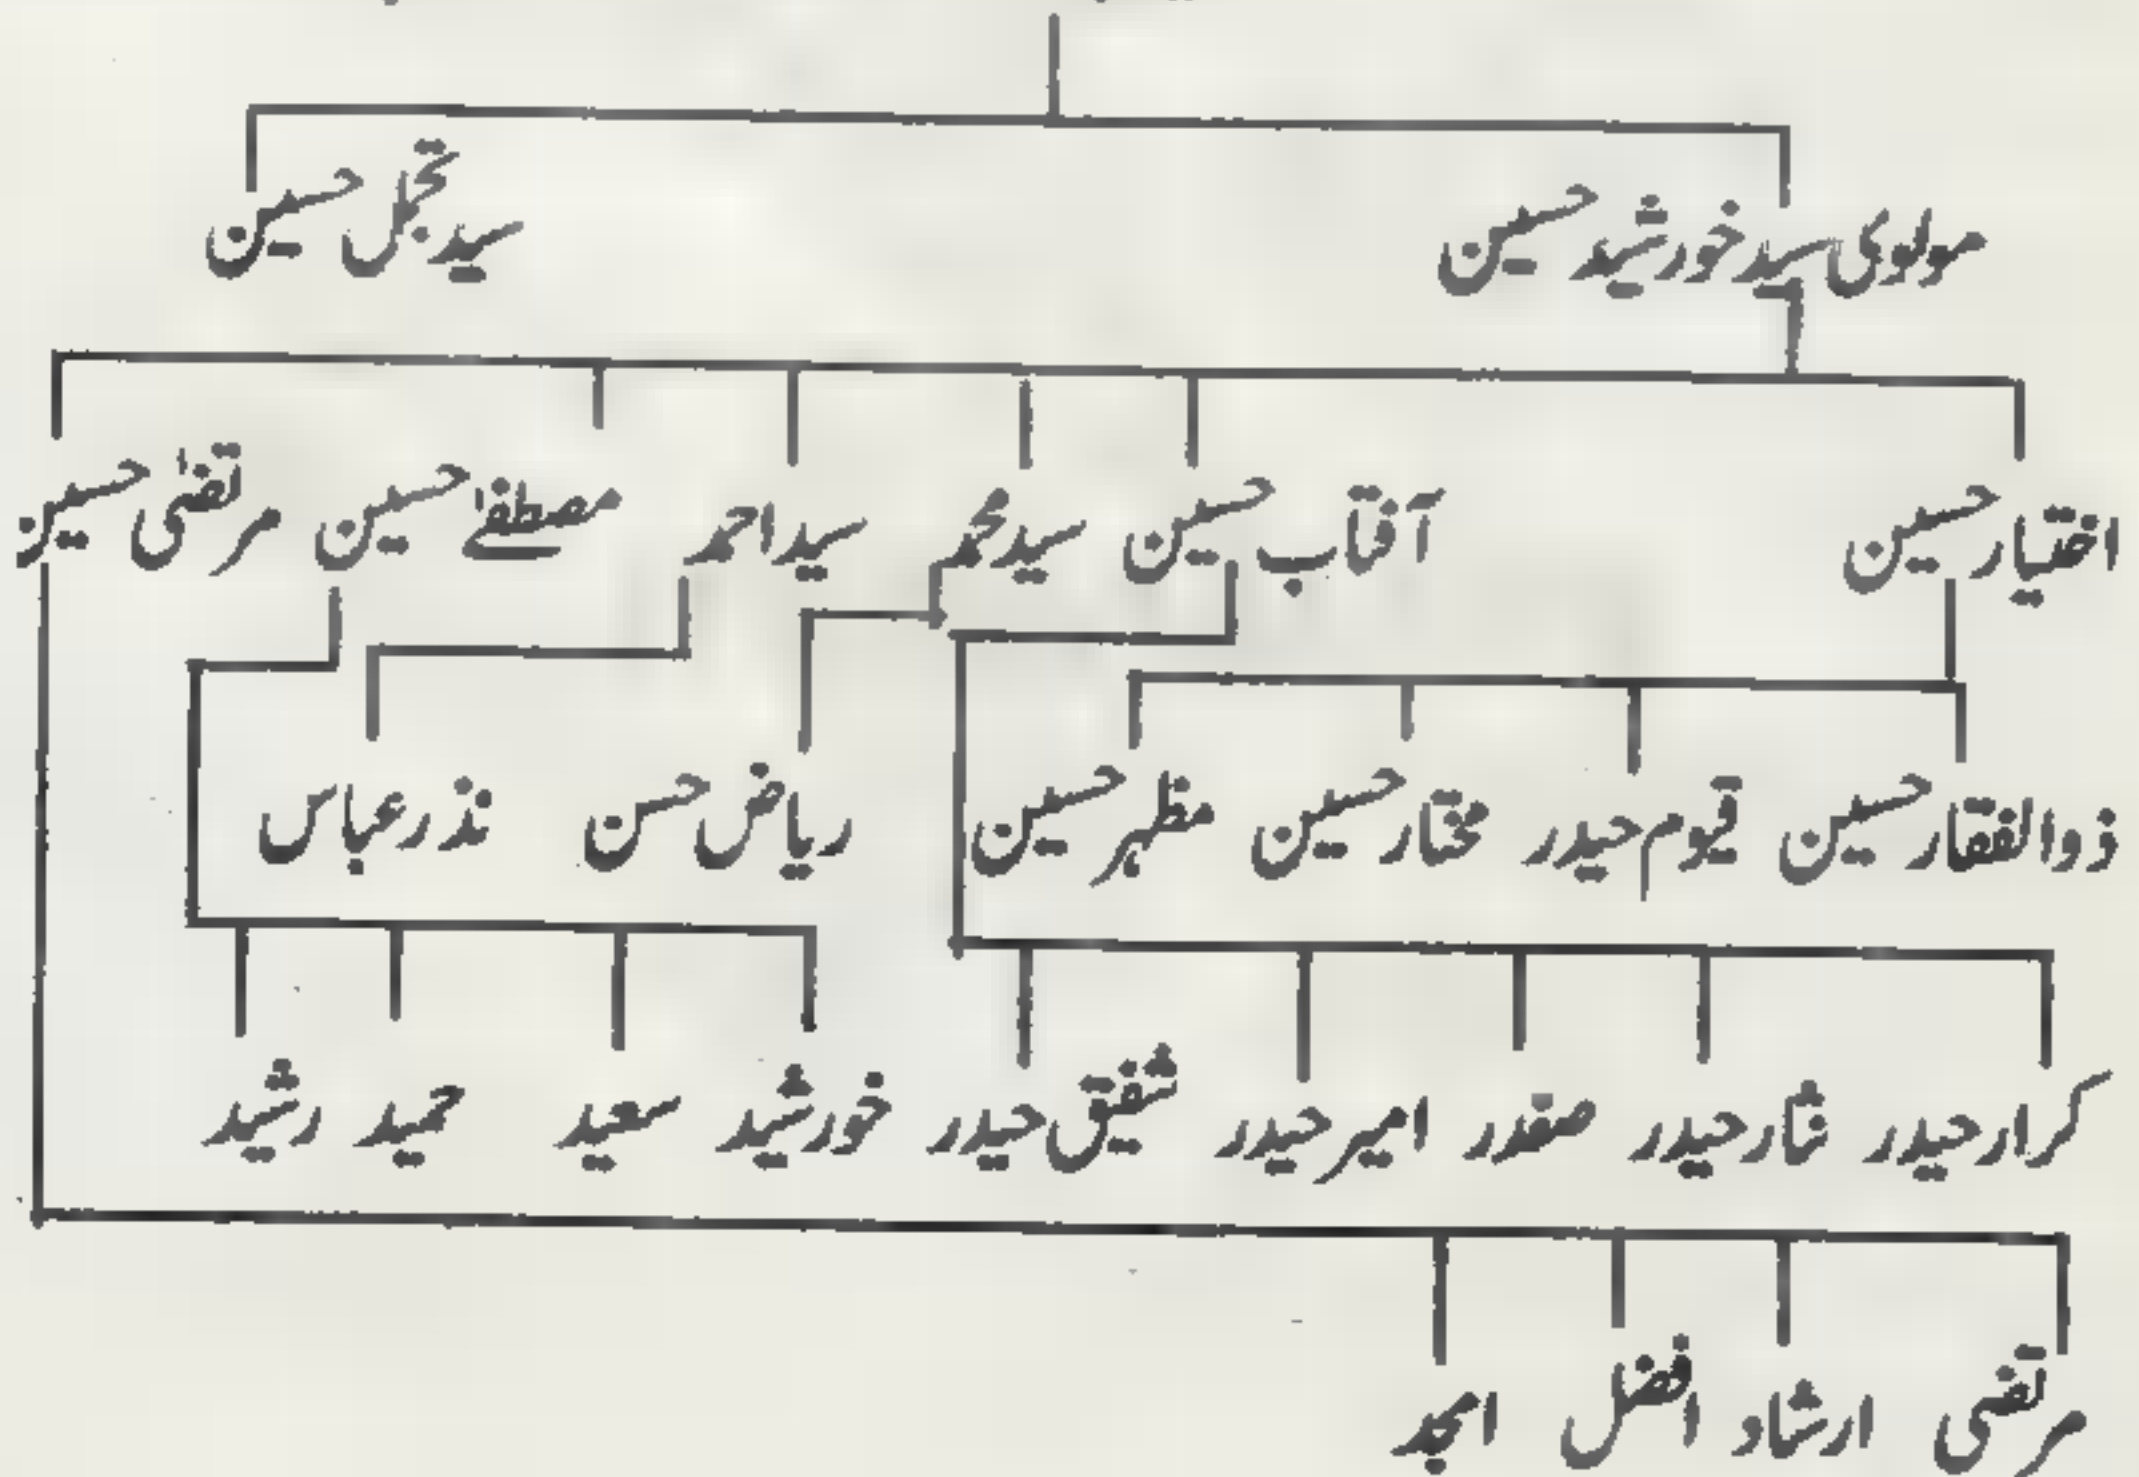 مولوی سید خورشید حسین سید تجمل حسین
اختیار حسین آفتاب حسین سید محمد سید احمد مصطفےٰ حسین مرتضیٰ حسین
ذوالفقار حسین قیوم حیدر مختار حسین مظہر حسین ریاض حسن نذر عباس
کرار حیدر نثار حیدر صفدر امیر حیدر شفیق حیدر خورشید سعید حمید رشید
مرتضی ارشاد افضل امجد